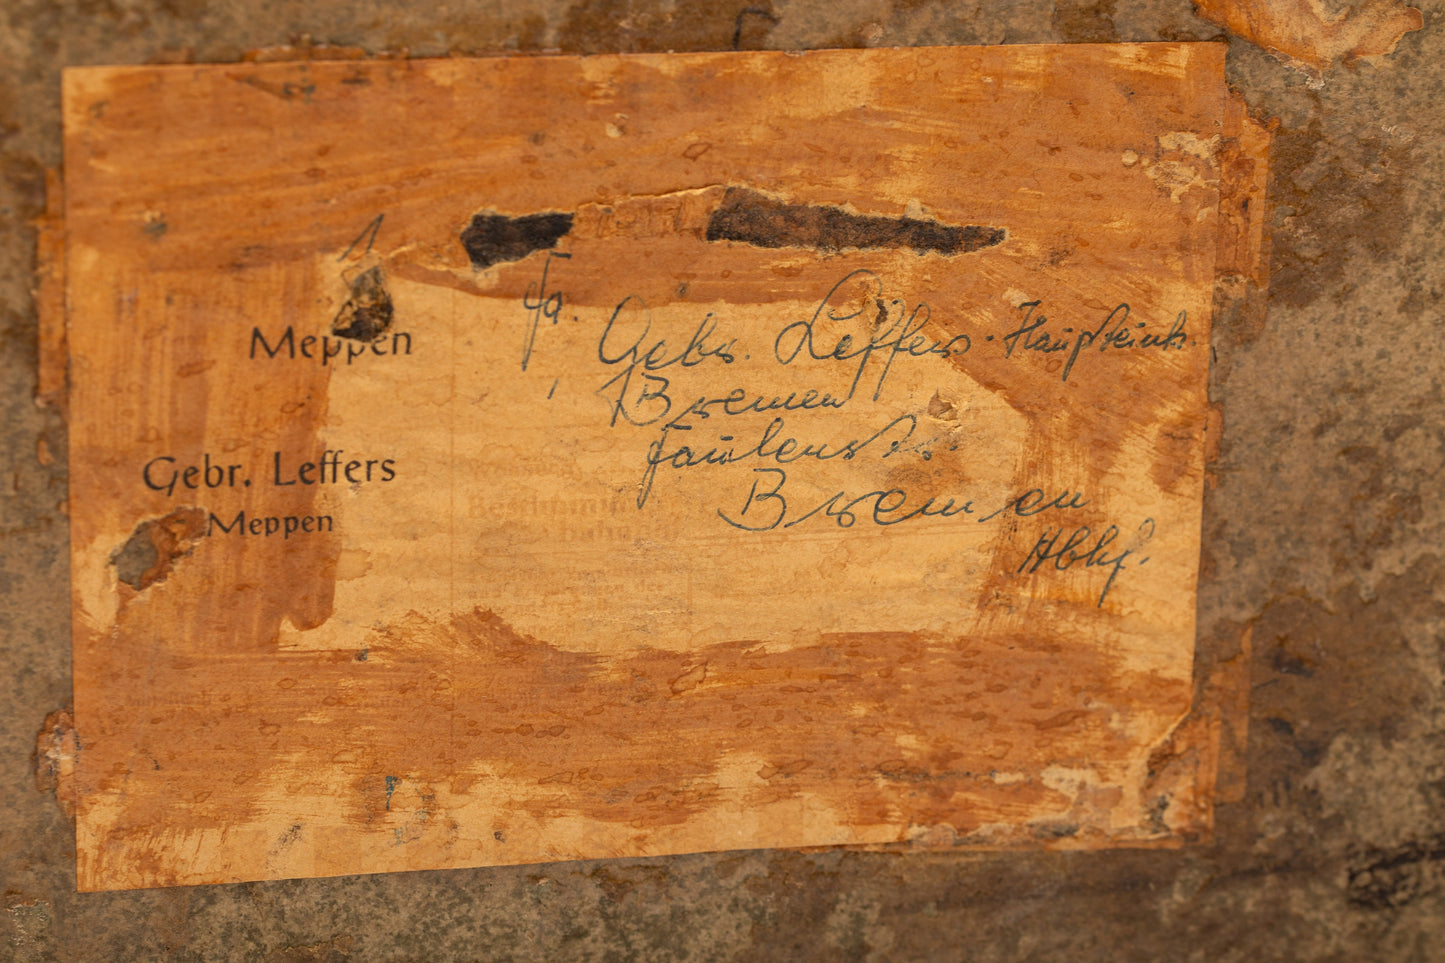 Meppen
Gebr. Leffers
Meppen
Fa. Gebr. Leffers - Haupteink.
Bremen
Faulenstr.
Bremen
Hbhf.
Bestimmungs
bahnhof